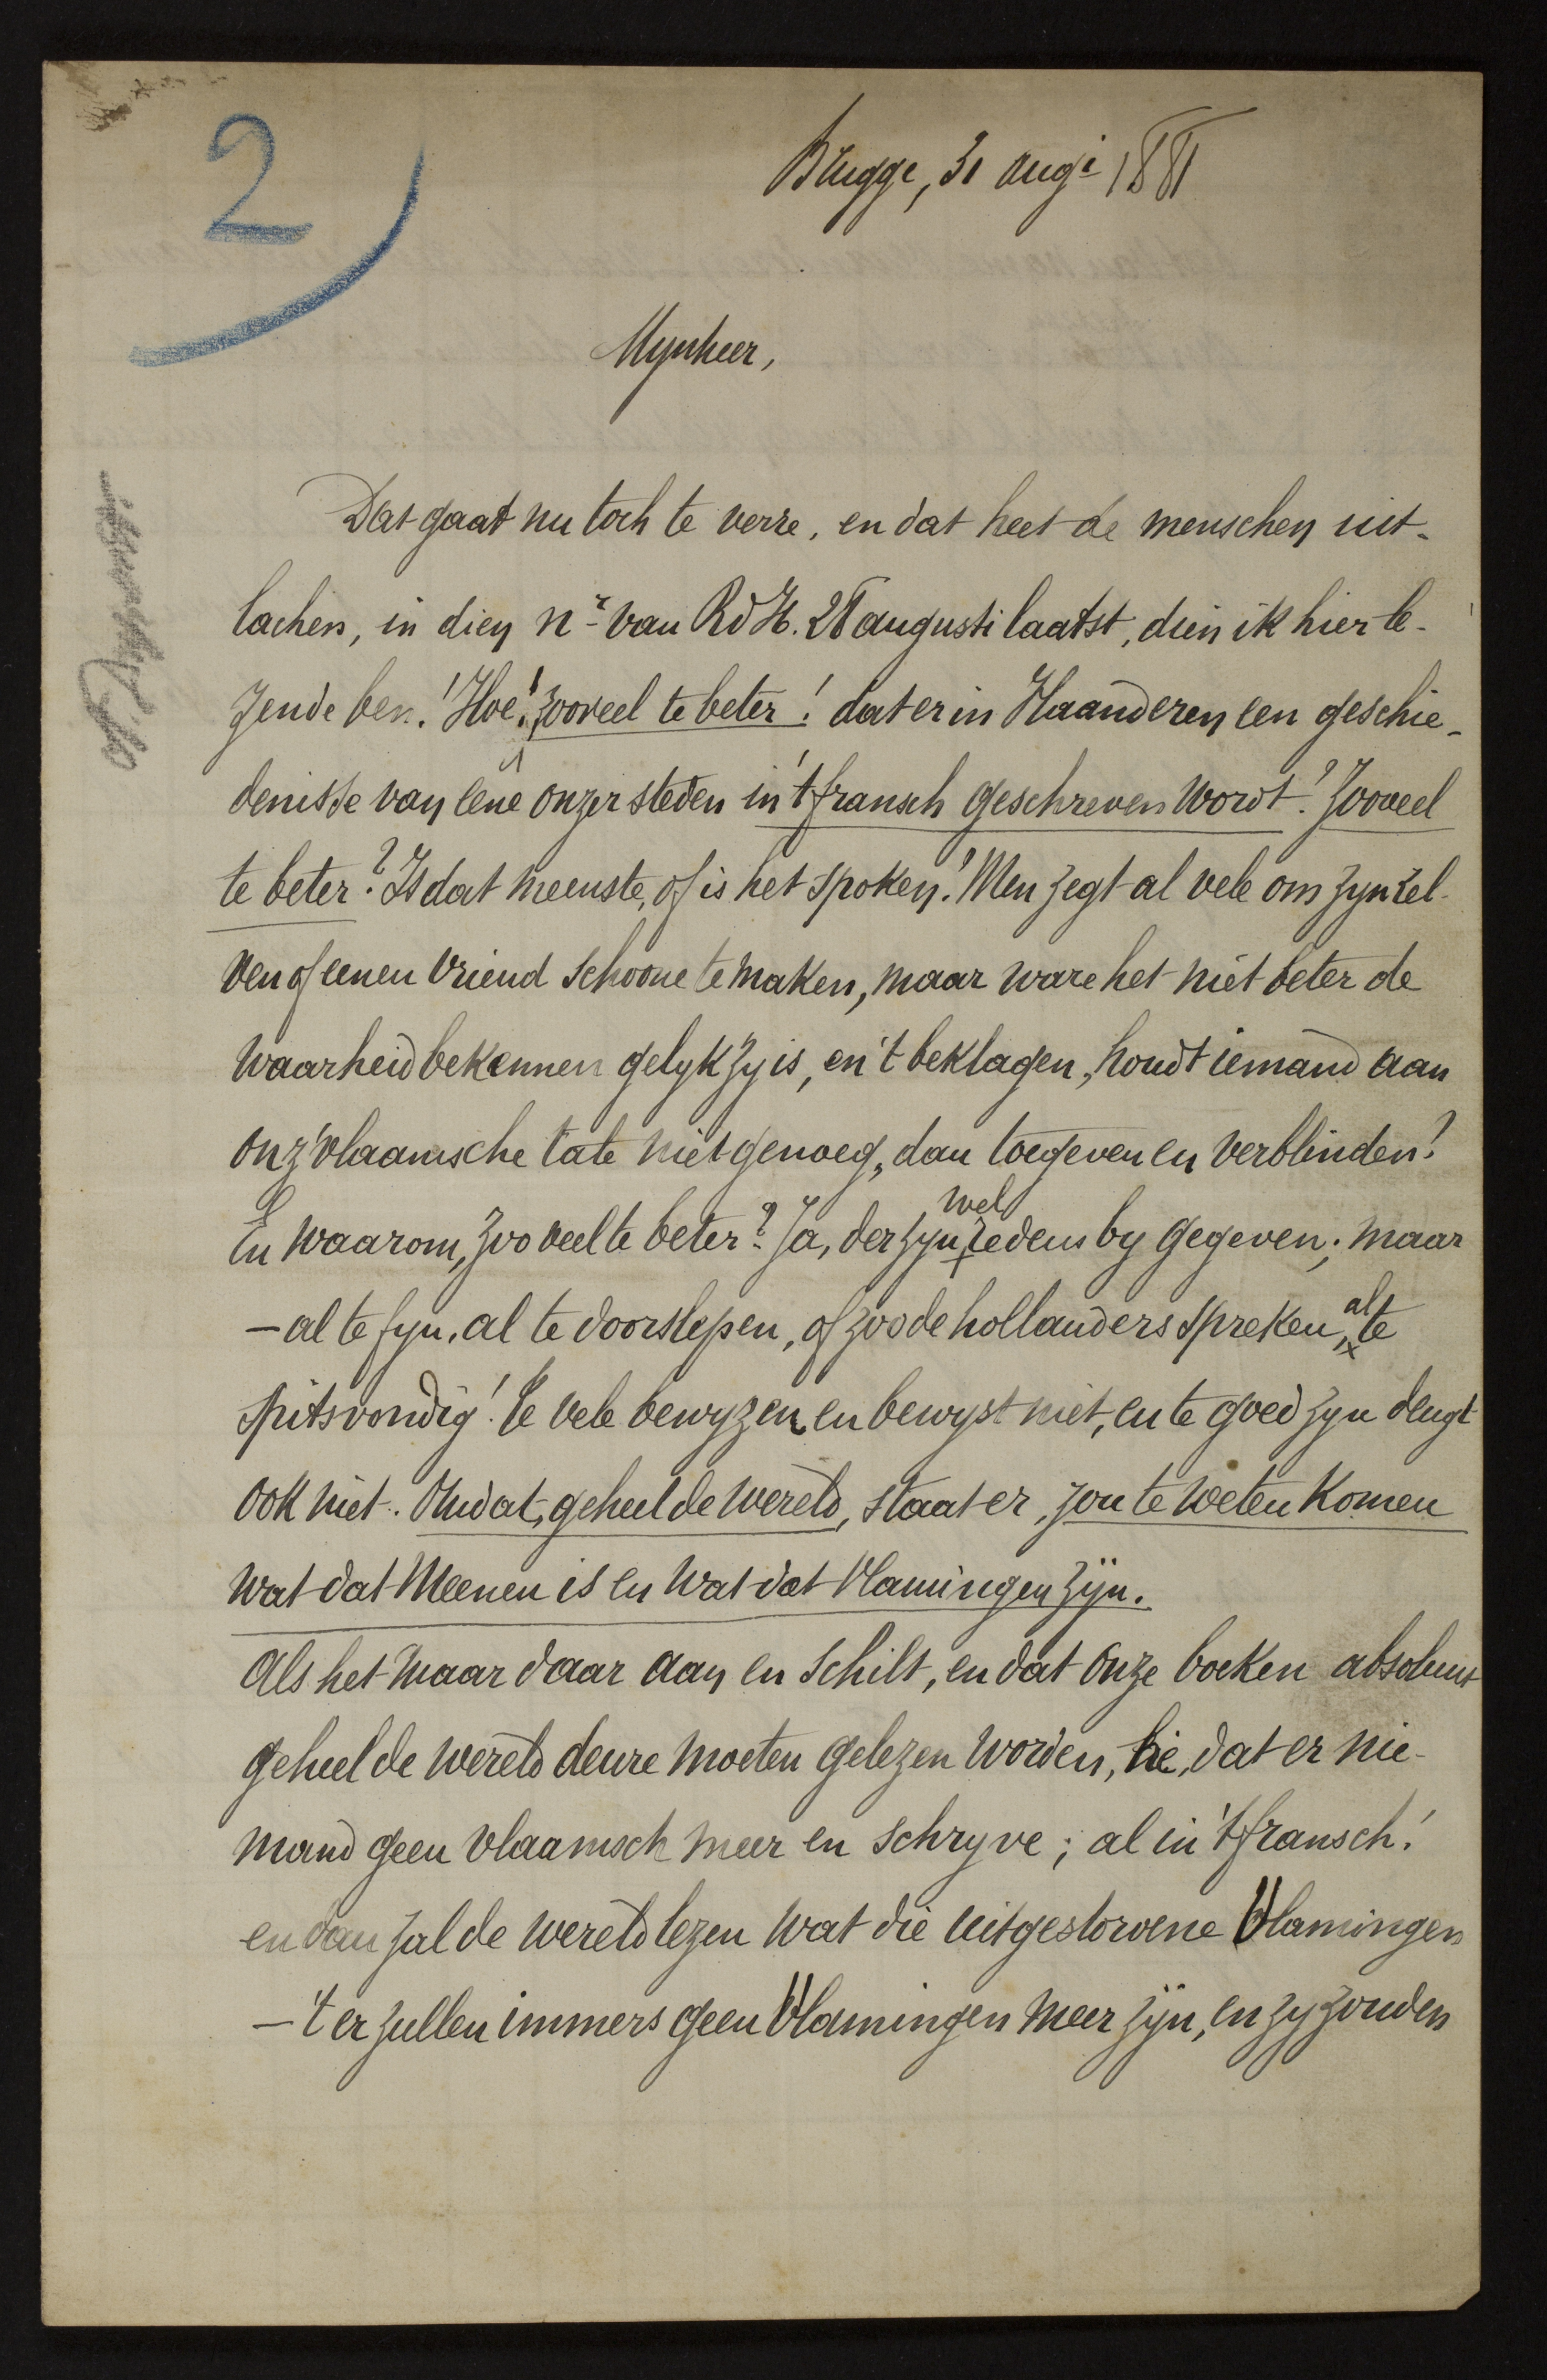 2
Brugge, 31 augi 1881
Mynheer,
Dat gaat nu toch te verre, en dat heet de menschen uit-
lachen, in dien nr van RdH. 28 augusti laatst, dien ik hier le-
zende ben! Hoe! zooveel te beter! dat er in Vlaanderen een geschie-
denisse van eene onzer steden in 't fransch geschreven wordt! Zooveel
te beter? Is dat meenste, of is het spoken! Men zegt al vele om zyn zel-
ven of eenen vriend schoone te maken, maar ware het niet beter de
waarheid bekennen gelyk zy is, en 't beklagen, houdt iemand aan
onz' vlaamsche tale niet genoeg, dan toegeven en verblinden?
En waarom, zoo veel te beter? Ja, der zyn wel redens by gegeven; maar
— al te fyn, al te doorslepen, of zoo de hollanders spreken, al te
spitsvondig! Te vele bewyzen en bewyst niet, en te goed zyn deugt
ook niet. Omdat, geheel de wereld, staat er, zou te weten komen
wat dat Meenen is en wat dat Vlamingen zyn.
Als het maar daar aan en schilt, en dat onze boeken absoluut
geheel de wereld deure moeten gelezen worden, hè, dat er nie-
mand geen vlaamsch meer en schryve; al in 't fransch!
en dan zal de wereld lezen wat die uitgestorvene Vlamingen
— 't er zullen immers geen Vlamingen meer zyn, en zy zouden